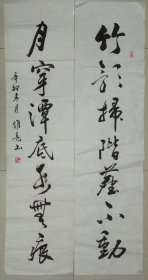 竹影掃階塵不動
月穿潭底水無痕
辛卯冬月